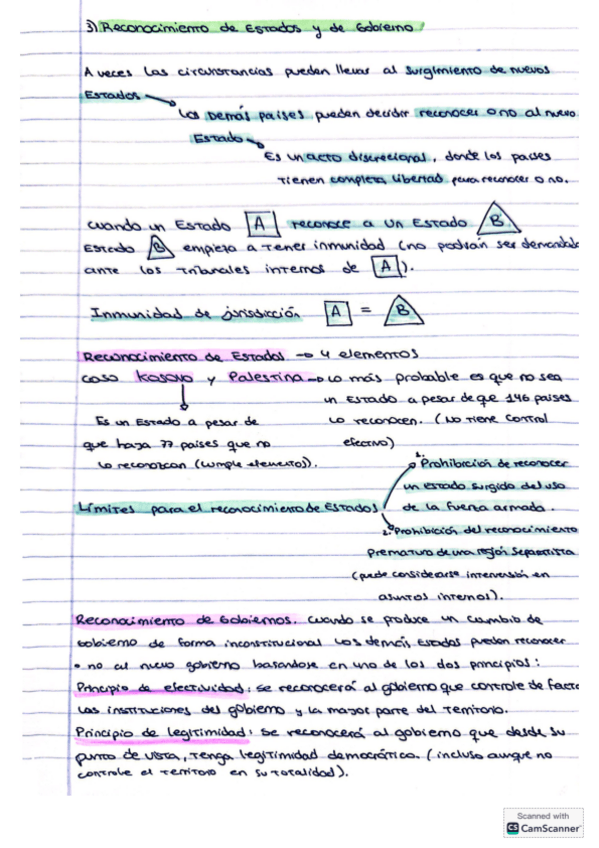 3) Reconocimiento de Estados y de Gobierno
A veces las circunstancias pueden llevar al surgimiento de nuevos
Estados
Los demás países pueden decidir reconocer o no al nuevo
Estado
Es un acto discrecional, donde los países
tienen completa libertad para reconocer o no.
cuando un Estado A reconoce a un Estado B
Estado B empieza a tener inmunidad (no podrán ser demandado
ante los tribunales internos de A).
Inmunidad de jurisdicción A = B
Reconocimiento de Estados → 4 elementos
caso Kosovo y Palestina → Lo más probable es que no sea
un Estado a pesar de que 146 países
Es un Estado a pesar de
lo reconocen. (No tiene control
que haya 77 países que no
efectivo)
lo reconozcan (cumple elementos).
1. Prohibición de reconocer
un estado surgido del uso
Límites para el reconocimiento de Estados
de la fuerza armada.
2. Prohibición del reconocimiento
prematura de una región separatista
(puede considerarse intervensión en
asuntos internos).
Reconocimiento de Gobiernos. Cuando se produce un cambio de
Gobierno de forma inconstitucional los demás Estados pueden reconocer
o no al nuevo gobierno basandose en uno de los dos principios:
Principio de efectividad: se reconocerá al gobierno que controle de facto
las instituciones del gobierno y la mayor parte del territorio.
Principio de legitimidad: se reconocerá al gobierno que desde su
punto de vista, tenga legitimidad democrática. (incluso aunque no
controle el territorio en su totalidad).
Scanned with
CS CamScanner